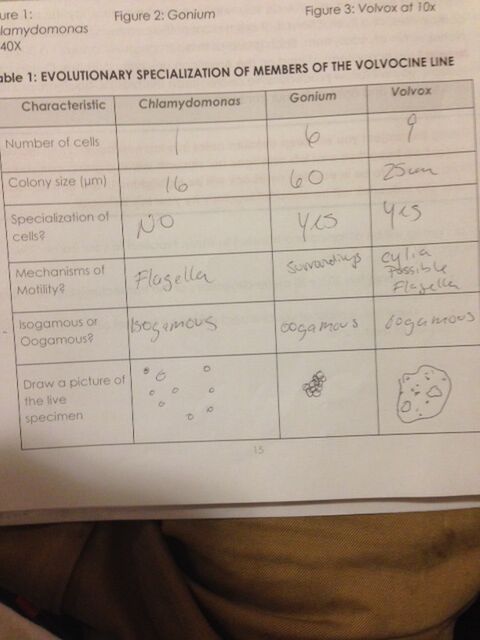 ure 1:
Figure 2: Gonium
Figure 3: Volvox at 10x
lamydomonas
40X
able 1: EVOLUTIONARY SPECIALIZATION OF MEMBERS OF THE VOLVOCINE LINE
Characteristic Chlamydomonas Gonium Volvox
Number of cells 1 6 9
Colony size (µm) 16 60 25um
Specialization of
cells?
NO Yes Yes
Mechanisms of
Motility?
Flagella Surrondings
Cylia
Possible
Flagella
Isogamous or
Oogamous?
Isogamous oogamous oogamous
Draw a picture of
the live
specimen
15